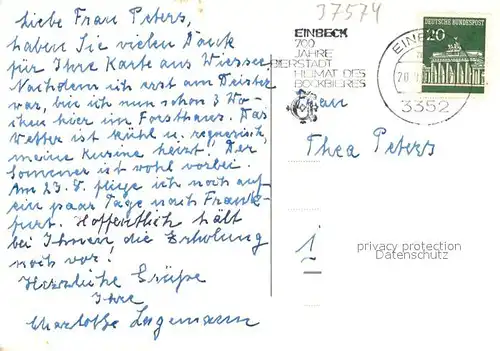 Liebe Frau Peters,
haben Sie vielen Dank
für Ihre Karte aus Wiessee.
Nachdem ich erst am Deister
war, bin ich nun schon 3 Wo-
chen hier im Forsthaus. Das
Wetter ist kühl u. regnerisch,
meine Kusine heizt. Der
Sommer ist wohl vorbei.
Am 23. 8. fliege ich noch auf
ein paar Tage nach Frank-
furt. Hoffentlich hält
bei Ihnen die Erholung
noch vor!
Herzliche Grüße
Ihre
Charlotte Lagemann
37574
EINBECK
700
JAHRE
BIERSTADT
HEIMAT DES
BOCKBIERES
DEUTSCHE BUNDESPOST
20
EINBECK
3352
Frau
Thea Peters
privacy protection
Datenschutz